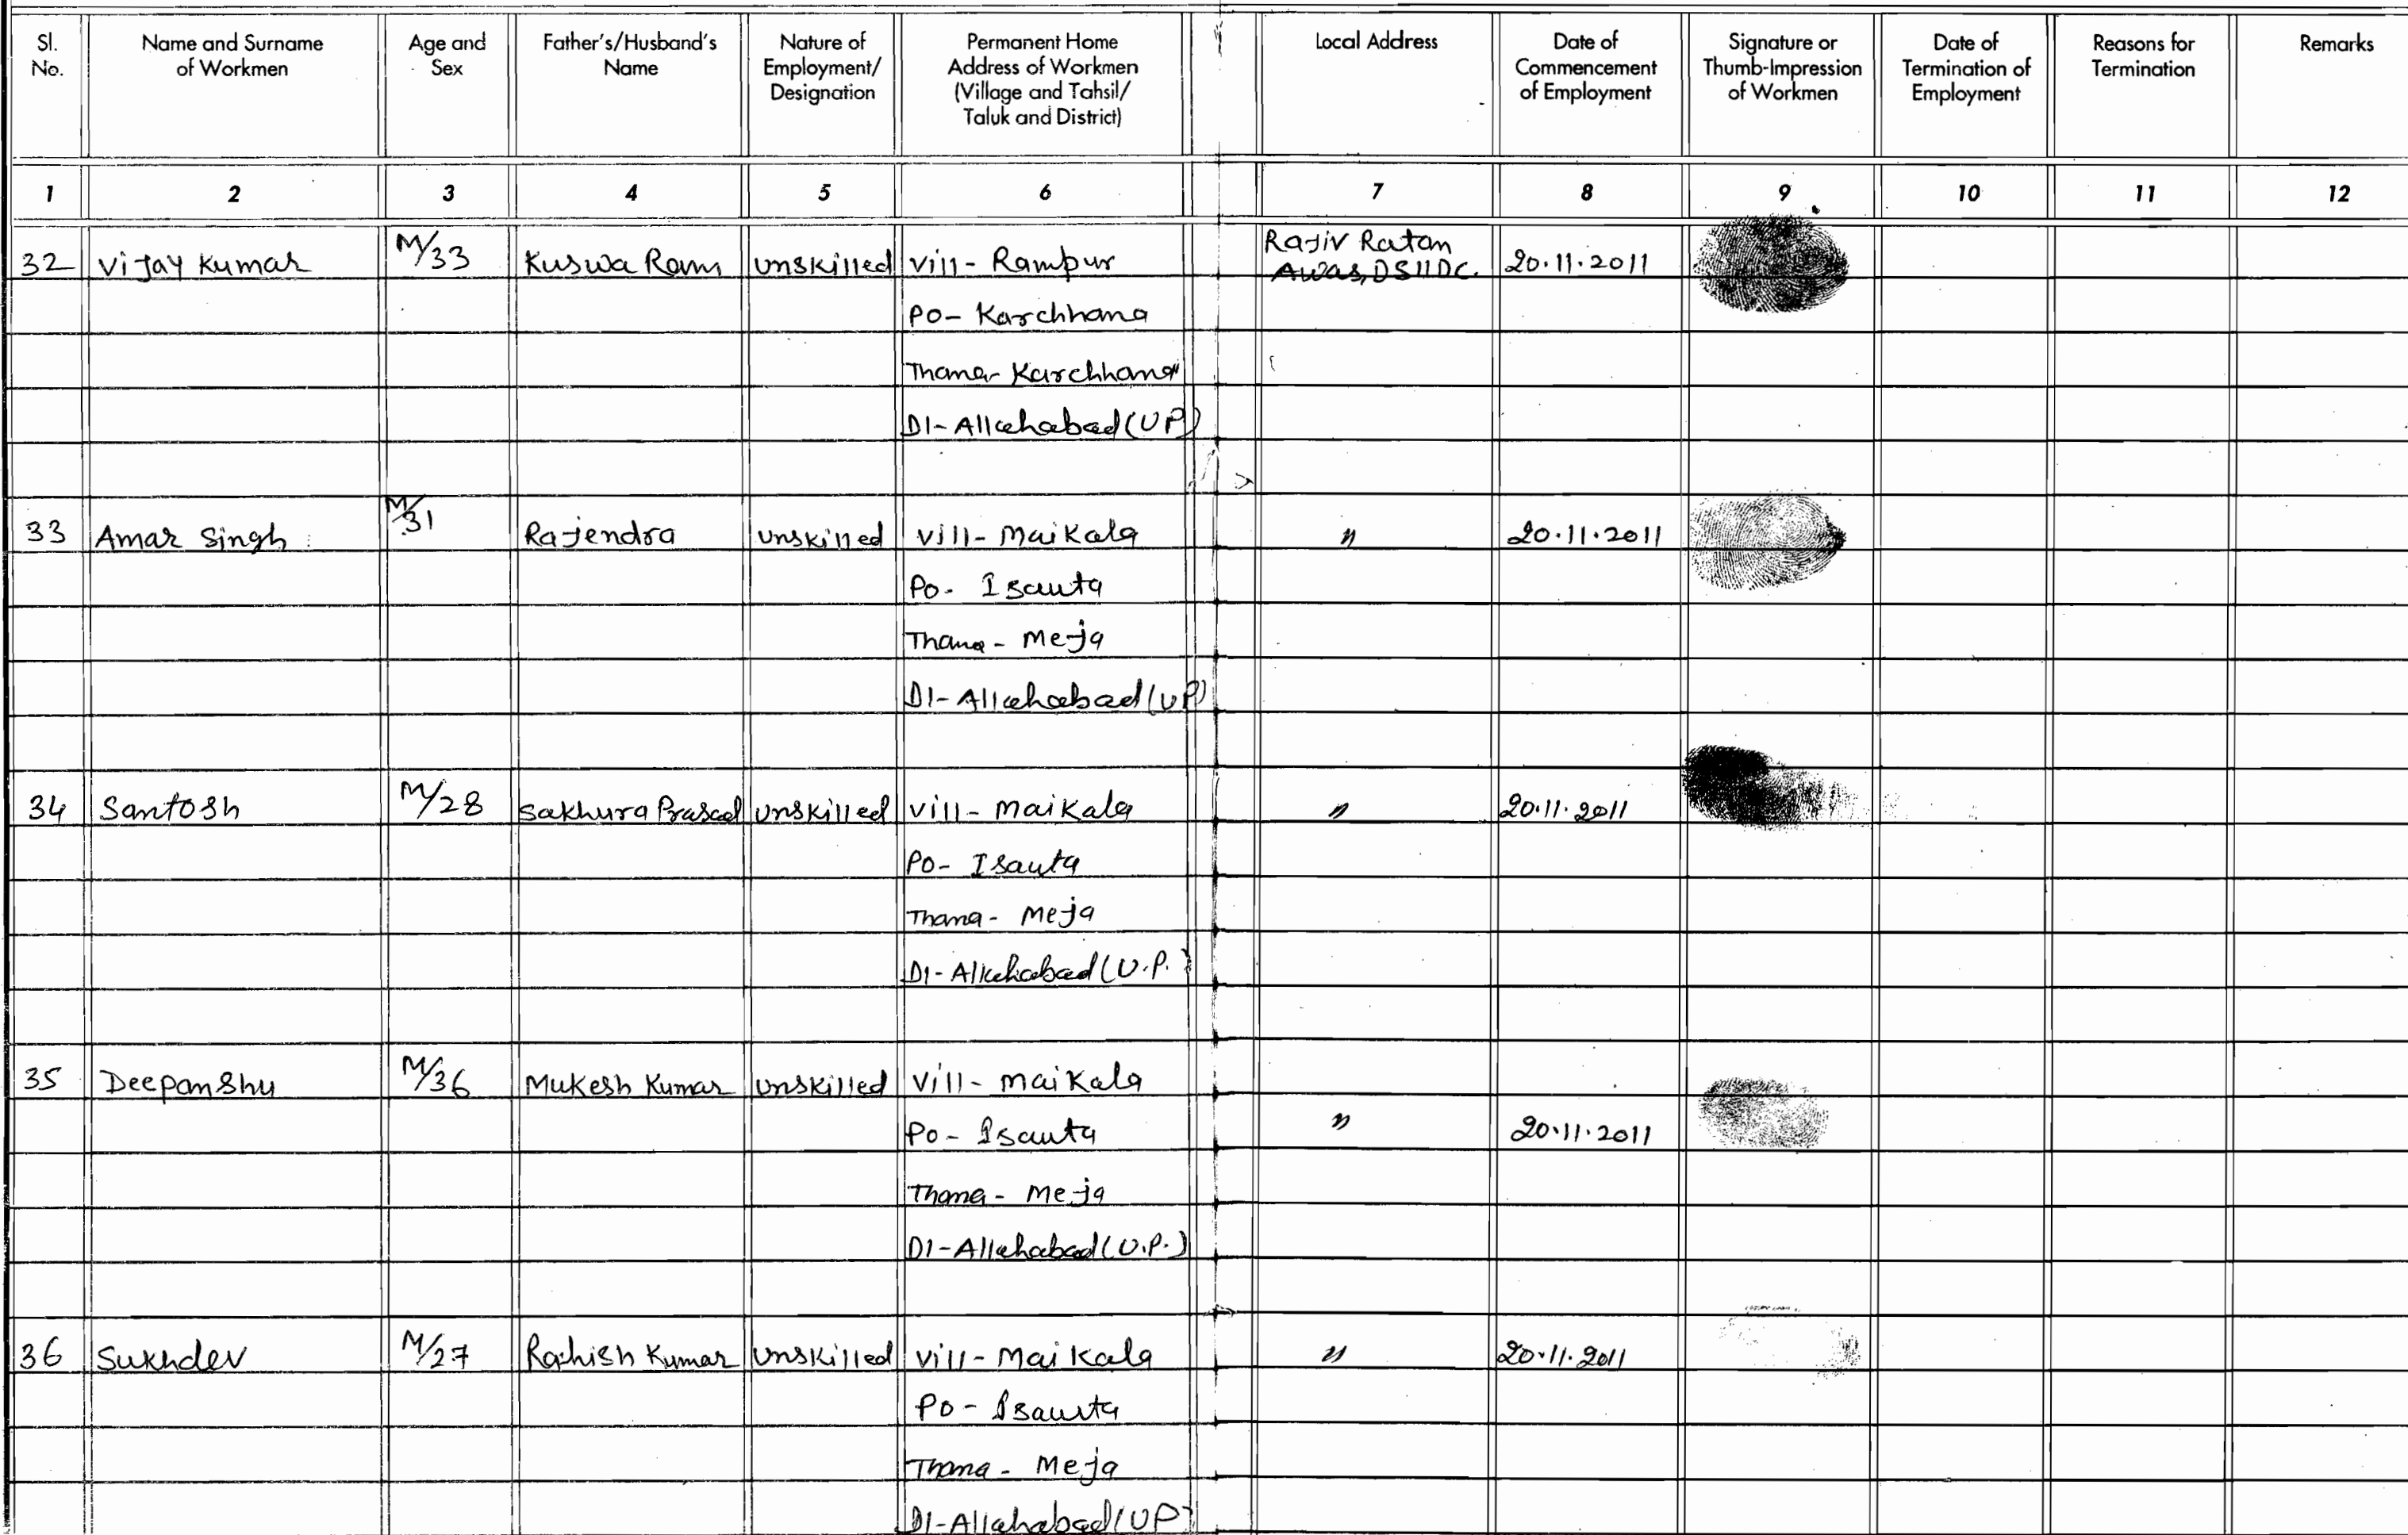 Sl. No. Name and Surname of Workmen Age and Sex Father's/Husband's Name Nature of Employment/ Designation Permanent Home Address of Workmen (Village and Tahsil/ Taluk and District) Local Address Date of Commencement of Employment Signature or Thumb-Impression of Workmen Date of Termination of Employment Reasons for Termination Remarks
1 2 3 4 5 6 7 8 9 10 11 12
32 Vijay Kumar M/33 Kuswa Ram Unskilled Vill- Rampur Rajiv Ratan Awas, DSIIDC. 20.11.2011
PO- Karchhana
Thana- Karchhana
DI- Allahabad (UP)
33 Amar Singh M/31 Rajendra Unskilled Vill- Maikala " 20.11.2011
Po- Isauta
Thana- Meja
DI- Allahabad (UP)
34 Santosh M/28 Sakhura Prasad Unskilled Vill- Maikala " 20.11.2011
Po- Isauta
Thana- Meja
DI- Allahabad (U.P.)
35 Deepanshu M/36 Mukesh Kumar Unskilled Vill- Maikala
Po- Isauta " 20.11.2011
Thana- Meja
DI- Allahabad (U.P.)
36 Sukhdev M/27 Unskilled Vill- Maikala " 20.11.2011
Po- Isauta
Thana- Meja
DI- Allahabad (UP)